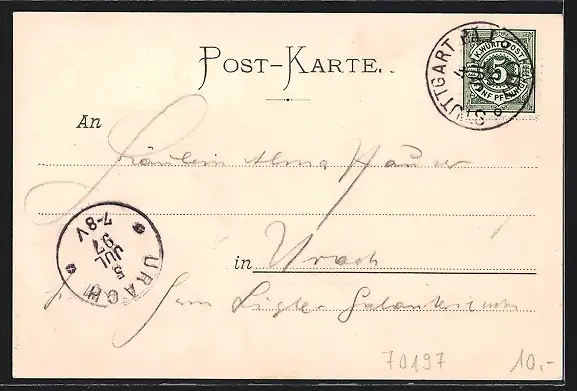 POST-KARTE.
STUTTGART
K. WÜRTT. POST
5
FÜNF PFENNIG
An
Fräulein Alma Hauser
in Urach
URACH
5
JUL
97
7-8V
Herrn
70197
10,-